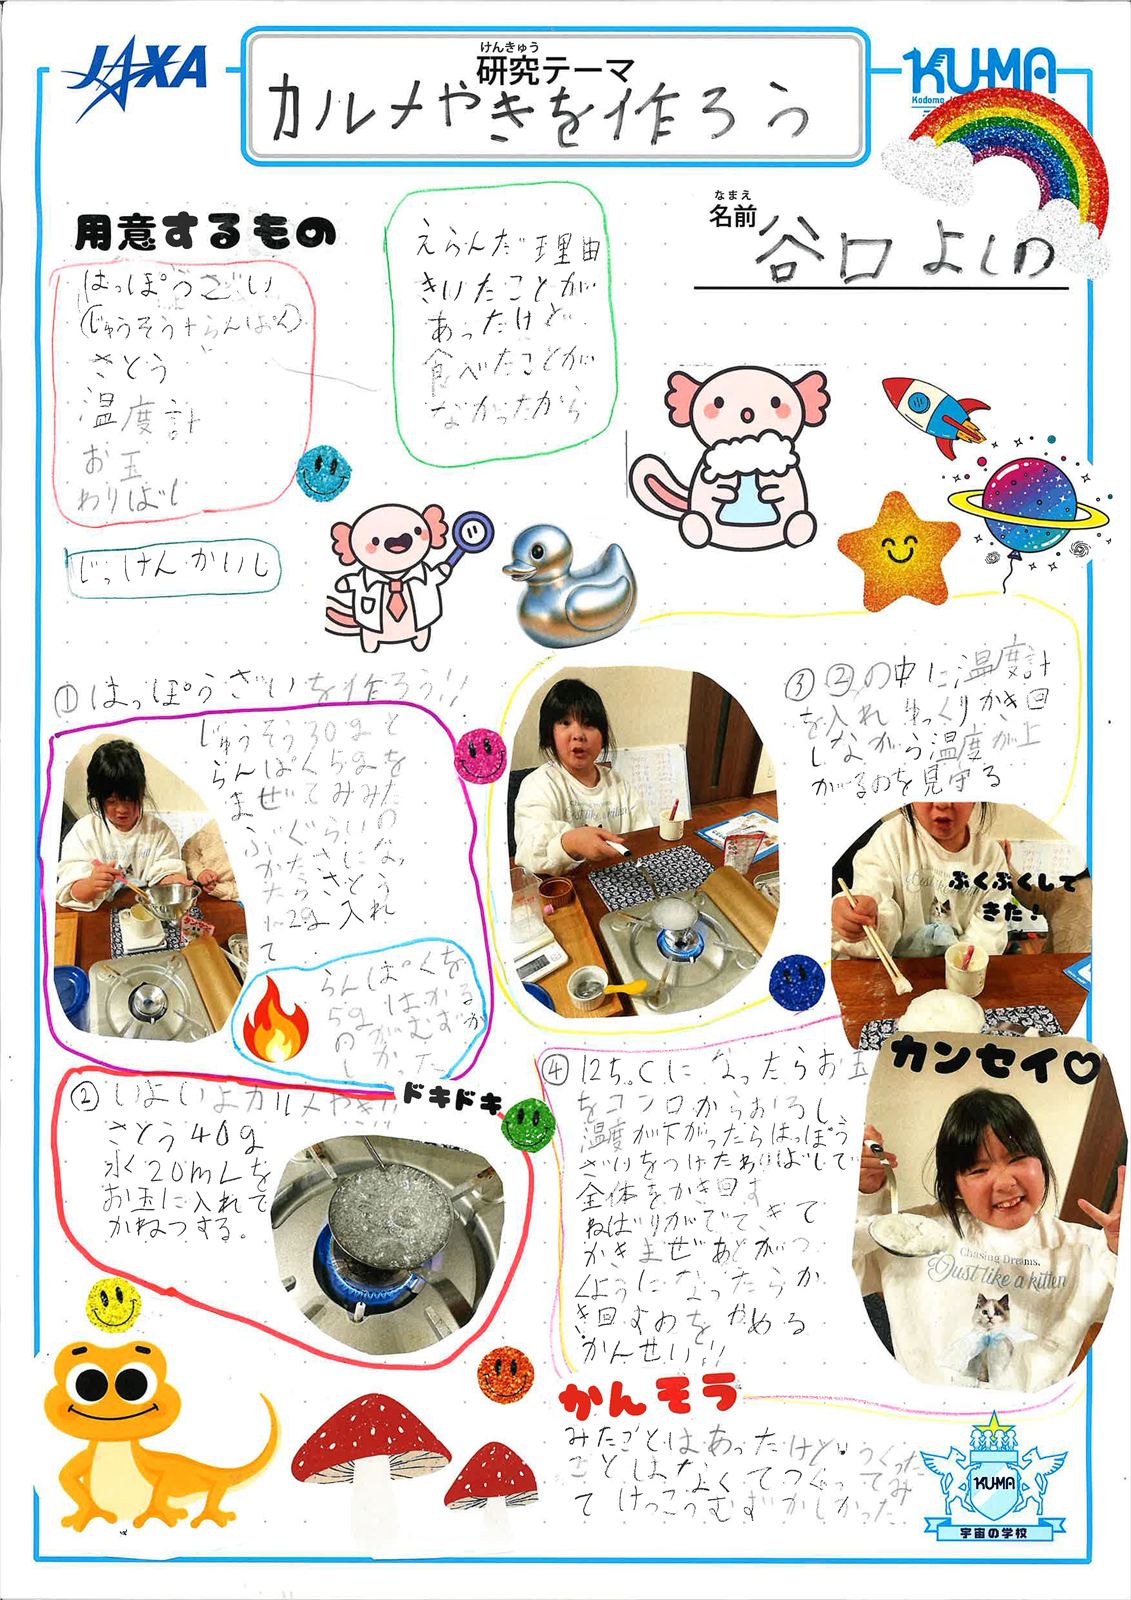 JAXA
けんきゅう
研究テーマ
カルメやきを作ろう
KUMA
なまえ
名前
谷口よしの
用意するもの
はっぽうざい
(じゅうそう+らんぱく)
さとう
温度計
お玉
わりばし
えらんだ理由
きいたことが
あったけど
食べたことが
なかったから
じっけんかいし
①はっぽうざいを作ろう!!
じゅうそう30gと
らんぱく5gを
まぜてみみた
ぶぐらいの
かたさになっ
たらさとう
1~2g入れ
て
らんぱくを
5gはかる
のがむずか
しかった
②いよいよカルメやき!!
さとう40g
水20mLを
お玉に入れて
かねつする。
ドキドキ
③②の中に温度計
を入れゆっくりかき回
しながら温度が上
がるのを見守る
ぶくぶくして
きた!
④125℃になったらお玉
をコンロからおろし
温度が下がったらはっぽう
ざいをつけたわりばしで
全体をかき回す
ねばりがでてきて
かきまぜあとがつ
くようになったらか
き回すのをやめる
かんせい!!
カンセイ♡
Chasing Dreams.
Just like a kitten
かんそう
みたことはあったけど、つくった
ことはなくてつくってみ
てけっこうむずかしかった
KUMA
宇宙の学校